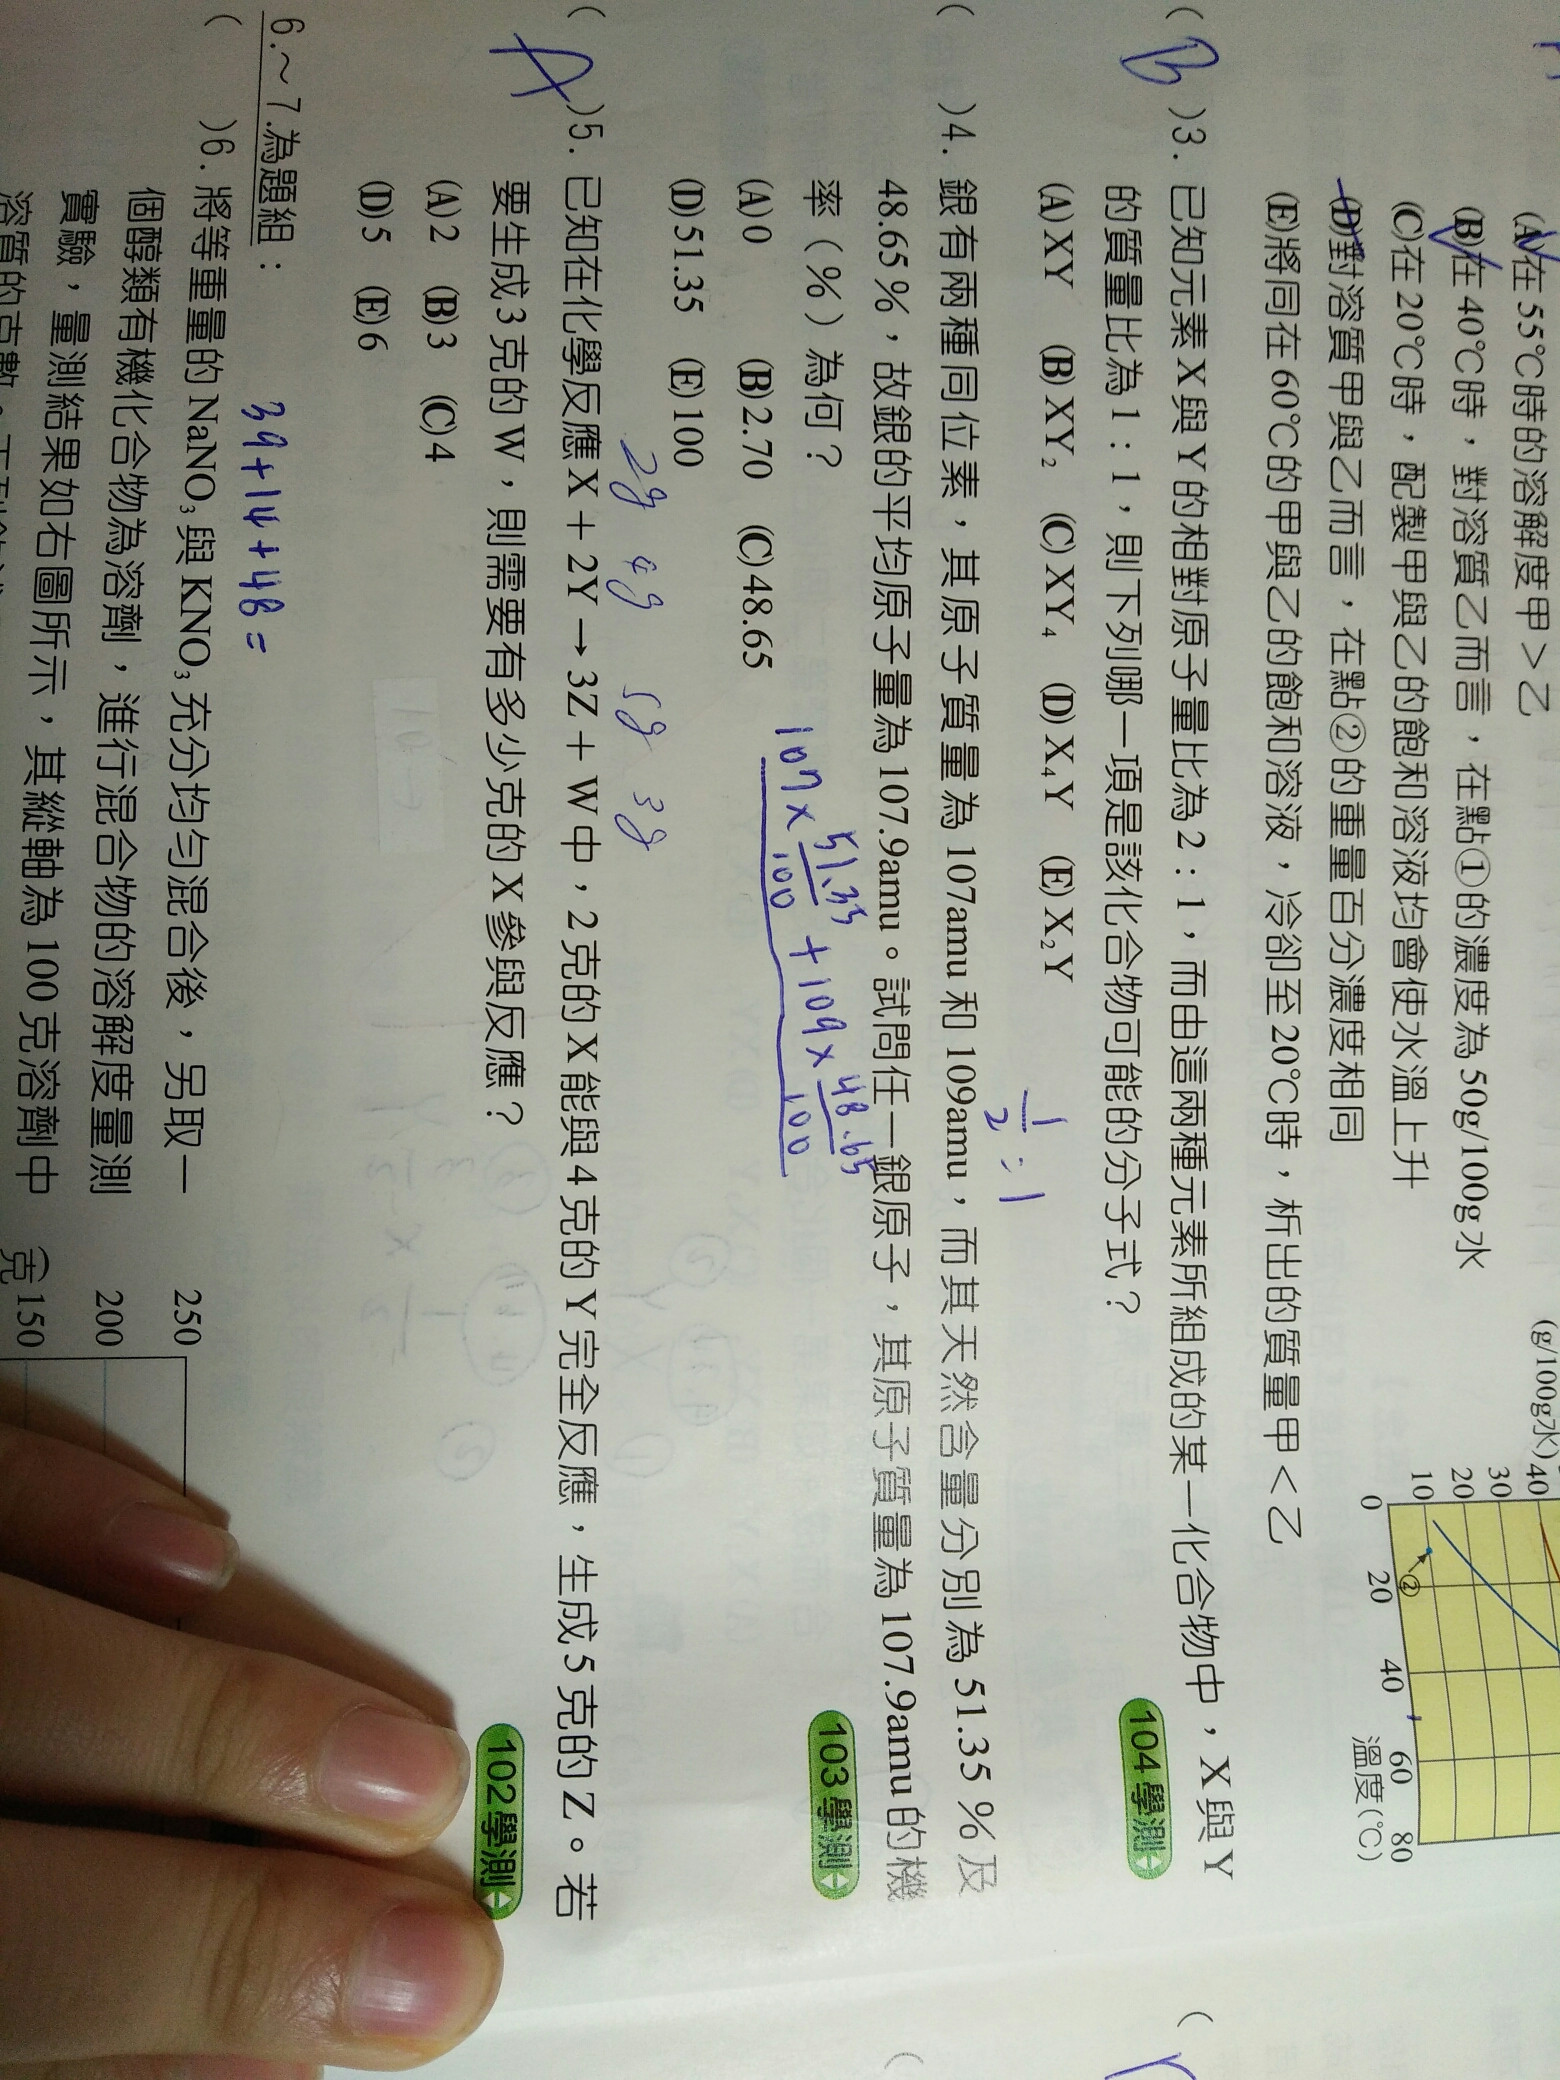 (A)在55℃時的溶解度甲>乙
(B)在40℃時，對溶質乙而言，在點①的濃度為50g/100g水
(C)在20℃時，配製甲與乙的飽和溶液均會使水溫上升
(D)對溶質甲與乙而言，在點②的重量百分濃度相同
(E)將同在60℃的甲與乙的飽和溶液，冷卻至20℃時，析出的質量甲<乙
(g/100g水)
40
30
20
10
0
②
20 40 60 80
溫度(℃)
( B )3. 已知元素X與Y的相對原子量比為2：1，而由這兩種元素所組成的某一化合物中，X與Y
的質量比為1：1，則下列哪一項是該化合物可能的分子式？
104學測
(A)XY (B)XY₂ (C)XY₄ (D)X₄Y (E)X₂Y
1/2 : 1
( )4. 銀有兩種同位素，其原子質量為107amu和109amu，而其天然含量分別為51.35%及
48.65%，故銀的平均原子量為107.9amu。試問任一銀原子，其原子質量為107.9amu的機
率（%）為何？
103學測
(A)0 (B)2.70 (C)48.65
(D)51.35 (E)100
107×51.35/100+109×48.65/100
2g 4g 5g 3g
( A )5. 已知在化學反應X+2Y→3Z+W中，2克的X能與4克的Y完全反應，生成5克的Z。若
要生成3克的W，則需要有多少克的X參與反應？
102學測
(A)2 (B)3 (C)4
(D)5 (E)6
6.～7.為題組：
39+14+48=
( )6. 將等重量的NaNO₃與KNO₃充分均勻混合後，另取一
個醇類有機化合物為溶劑，進行混合物的溶解度量測
實驗，量測結果如右圖所示，其縱軸為100克溶劑中
250
200
150
(克